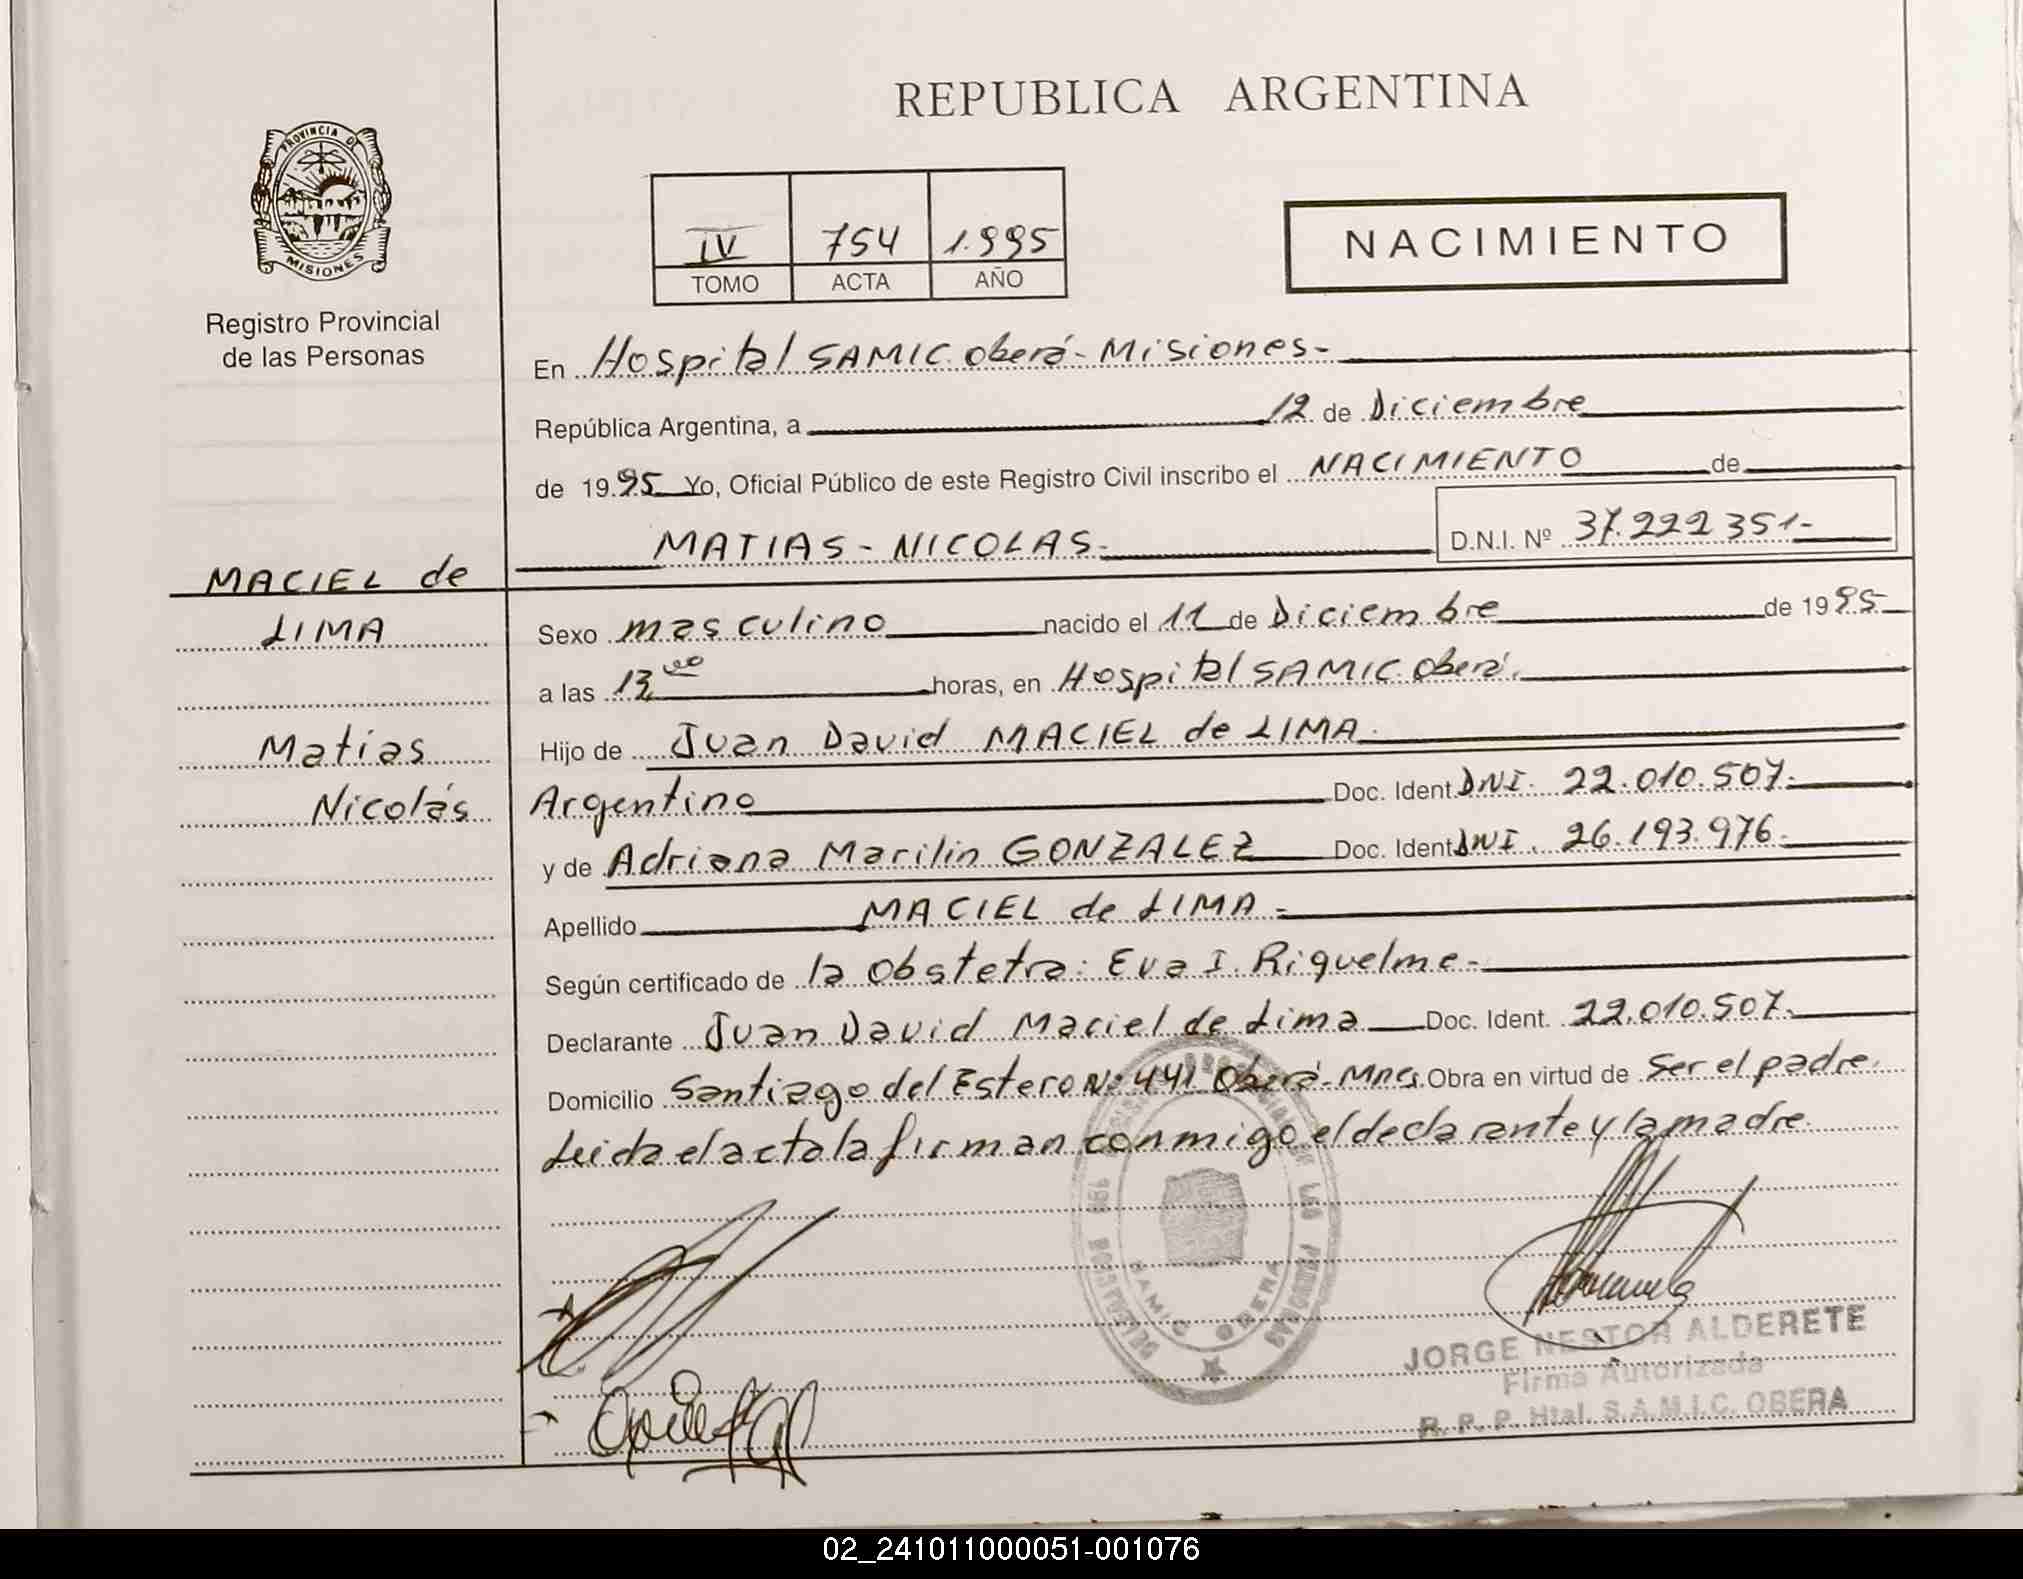 REPUBLICA ARGENTINA
PROVINCIA DE
MISIONES
Registro Provincial
de las Personas
IV 754 1.995
TOMO ACTA AÑO
NACIMIENTO
En Hospital SAMIC. Oberá - Misiones -
República Argentina, a 12 de Diciembre
de 1995 Yo, Oficial Público de este Registro Civil inscribo el NACIMIENTO de
MATIAS - NICOLAS - D.N.I. Nº 37.222 351-
MACIEL de
LIMA
Matias
Nicolás
Sexo masculino nacido el 11 de Diciembre de 1995
a las 13 00 horas, en Hospital SAMIC. Oberá.
Hijo de Juan David MACIEL de LIMA.
Argentino Doc. Ident. DNI. 22.010.507.
y de Adriana Marilin GONZALEZ Doc. Ident. DNI. 26.193.976.
Apellido MACIEL de LIMA -
Según certificado de la obstetra: Eva I. Riquelme -
Declarante Juan David Maciel de Lima Doc. Ident. 22.010.507.
Domicilio Santiago del Estero Nº 441 Oberá - Mnes Obra en virtud de Ser el padre.
Leida el acta la firman conmigo el declarante y la madre.
JORGE NESTOR ALDERETE
Firma Autorizada
R. P. P. Htal. S.A.M.I.C. OBERA
02_241011000051-001076